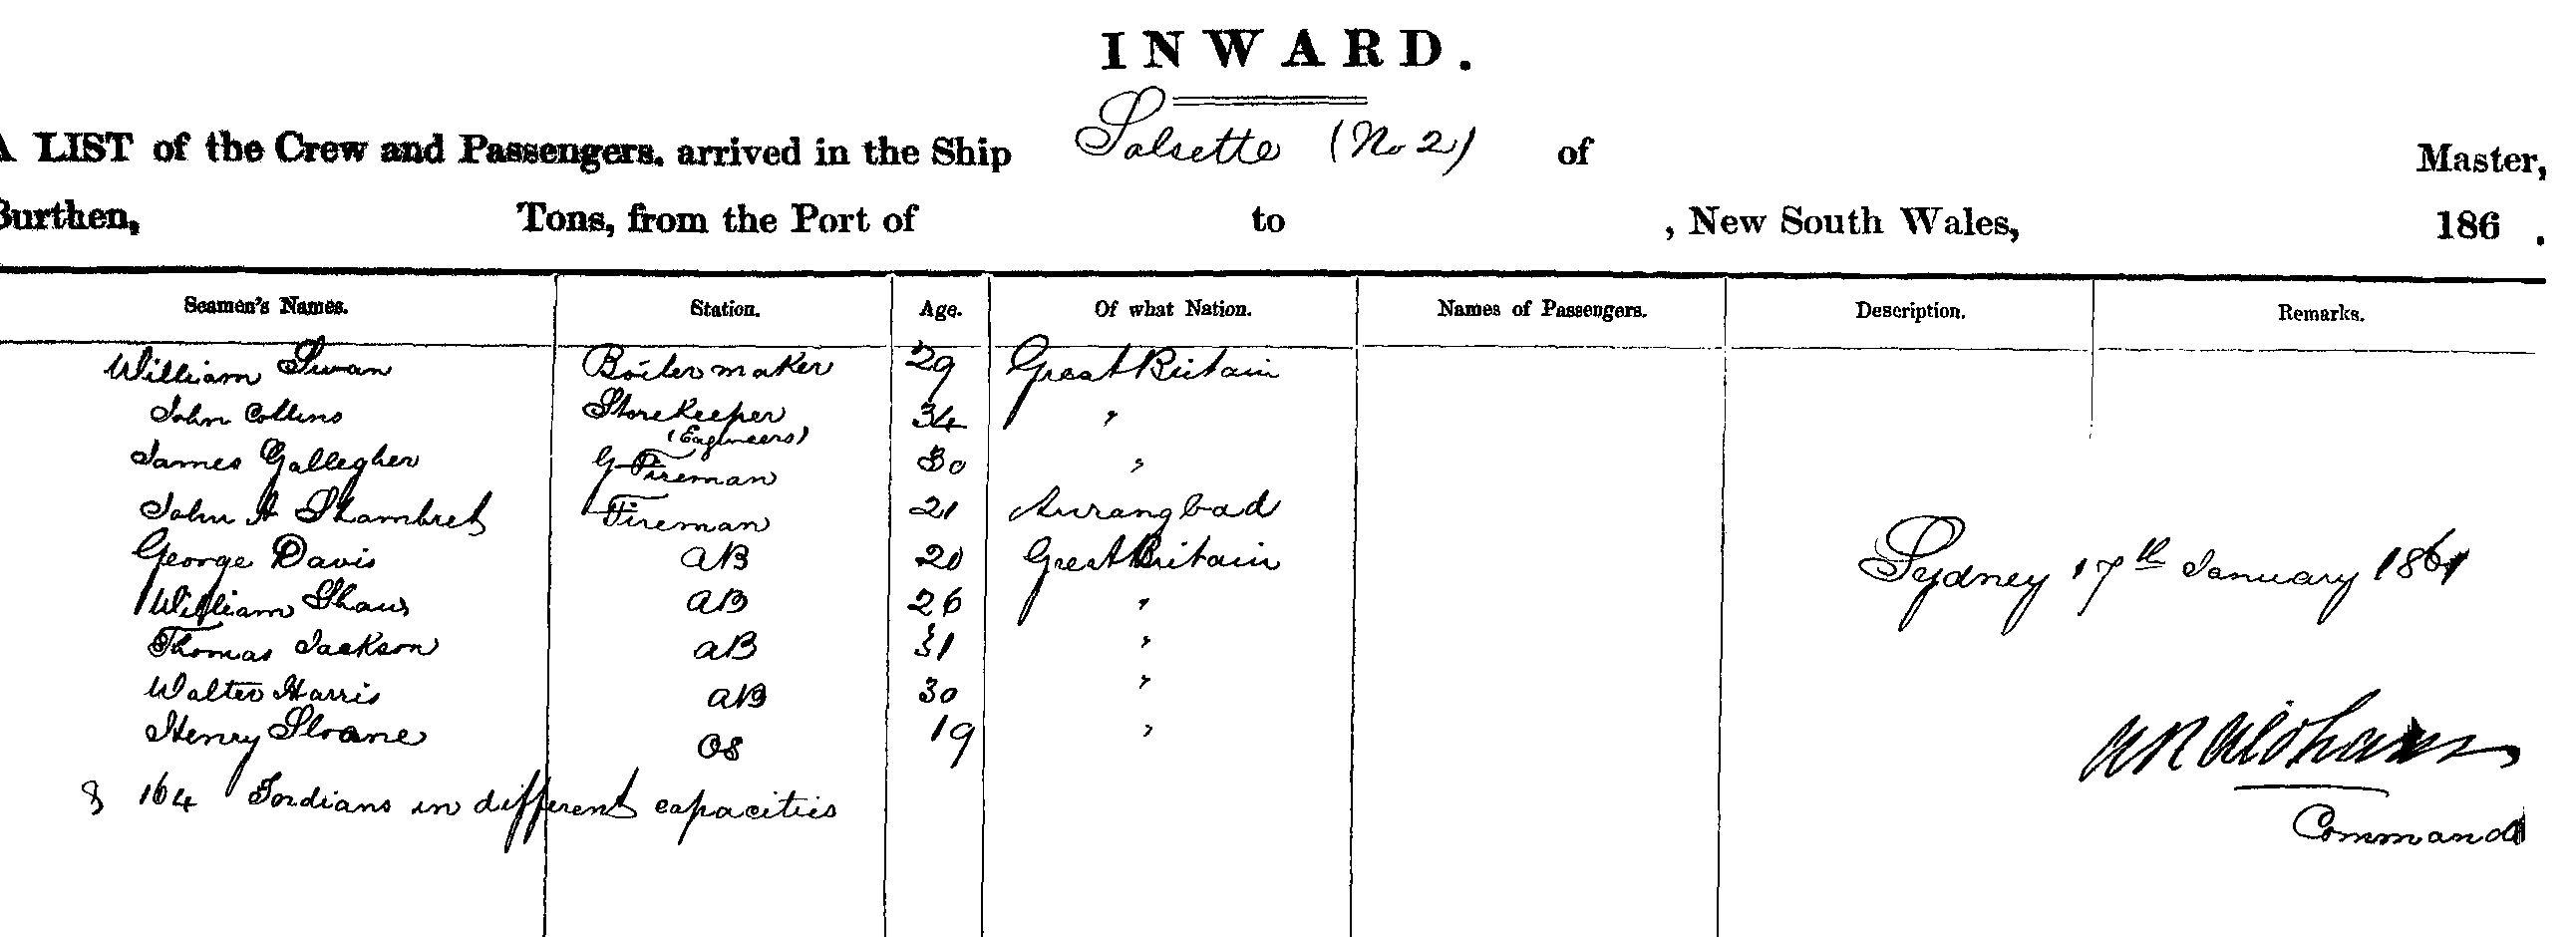 INWARD.
A LIST of the Crew and Passengers. arrived in the Ship Salsette (No 2) of Master,
Burthen, Tons, from the Port of to , New South Wales, 186 .
Seamen's Names. Station. Age. Of what Nation. Names of Passengers. Description. Remarks.
William Swan Boiler maker 29 Great Britain
John Collins Storekeeper 34 "
(Engineers)
James Gallegher G Fireman 30 "
John A Fireman 21 Aurangbad
George Davis AB 20 Great Britain
William Shaw AB 26 "
Sydney 17th January 1861
Thomas Jackson AB 31 "
Walter Harris AB 30 "
Henry Sloane OS 19 "
& 164 Indians in different capacities
Command